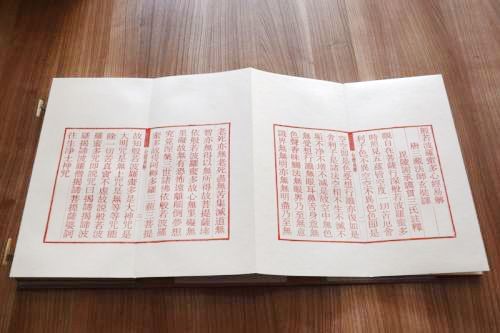 般若波羅蜜多心經解
唐三藏法師玄奘譯
三氏註釋
觀自在菩薩行深般若波羅蜜多
時照見五蘊皆空度一切苦厄舍
利子色不異空空不異色色即是
空空即是色受想行識亦復如是
舍利子是諸法空相不生不滅不
垢不淨不增不減是故空中無色
無受想行識無眼耳鼻舌身意無
色聲香味觸法無眼界乃至無意
識界無無明亦無無明盡乃至無
老死亦無老死盡無苦集滅道無
智亦無得以無所得故菩提薩埵
依般若波羅蜜多故心無罣礙無
罣礙故無有恐怖遠離顛倒夢想
究竟涅槃三世諸佛依般若波羅
蜜多故得阿耨多羅三藐三菩提
故知般若波羅蜜多是大神咒是
大明咒是無上咒是無等等咒能
除一切苦真實不虛故說般若波
羅蜜多咒即說咒曰揭諦揭諦波
羅揭諦波羅僧揭諦菩提薩婆訶
往生淨土神咒